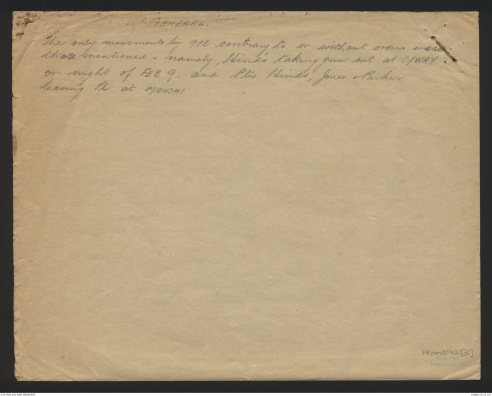 GENERAL.
The only movements by 9 Pl contrary to or without orders were
those mentioned - namely Hinds taking guns out at C/WAY
on night of FEB 9. and Ptes Hinds, Jones & Parker
leaving Pl at MANDAI